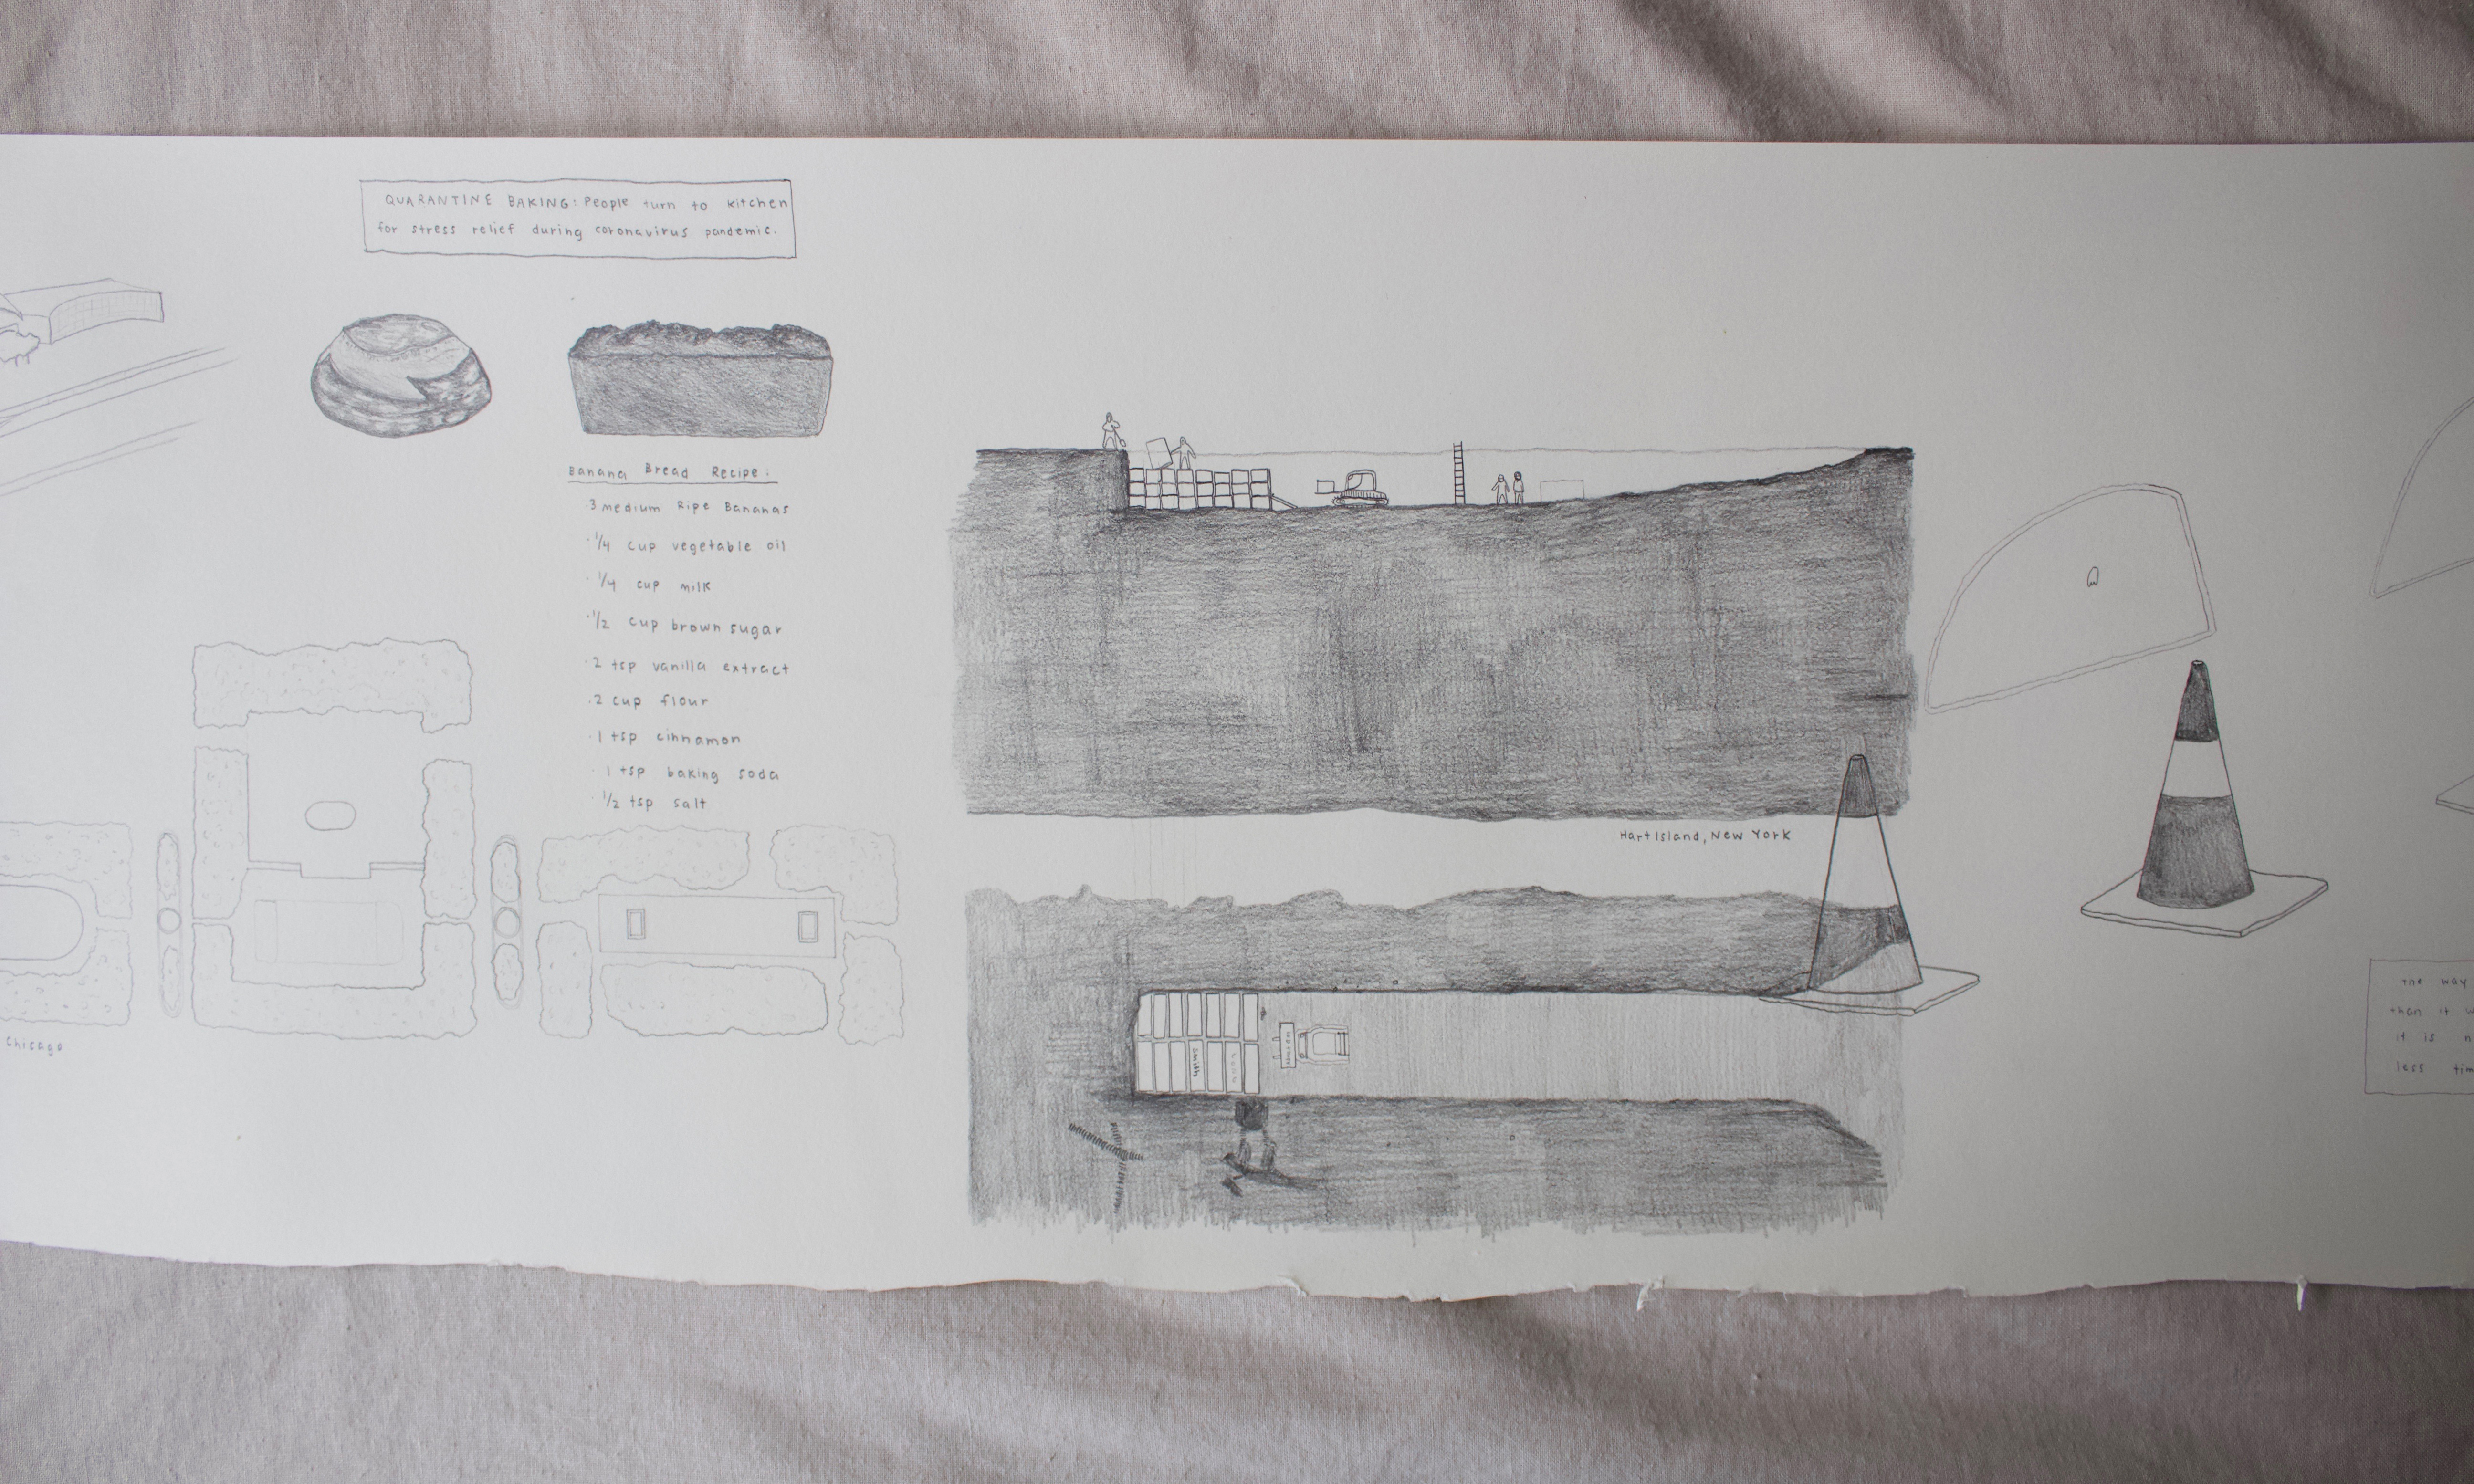 QUARANTINE BAKING: People turn to kitchen
for stress relief during coronavirus pandemic.
Banana Bread Recipe:
· 3 medium Ripe Bananas
· 1/4 cup vegetable oil
· 1/4 cup milk
· 1/2 cup brown sugar
· 2 tsp vanilla extract
· 2 cup flour
· 1 tsp cinnamon
· 1 tsp baking soda
· 1/2 tsp salt
Chicago
Hart Island, New York
Smith
The way
than it
it is
less